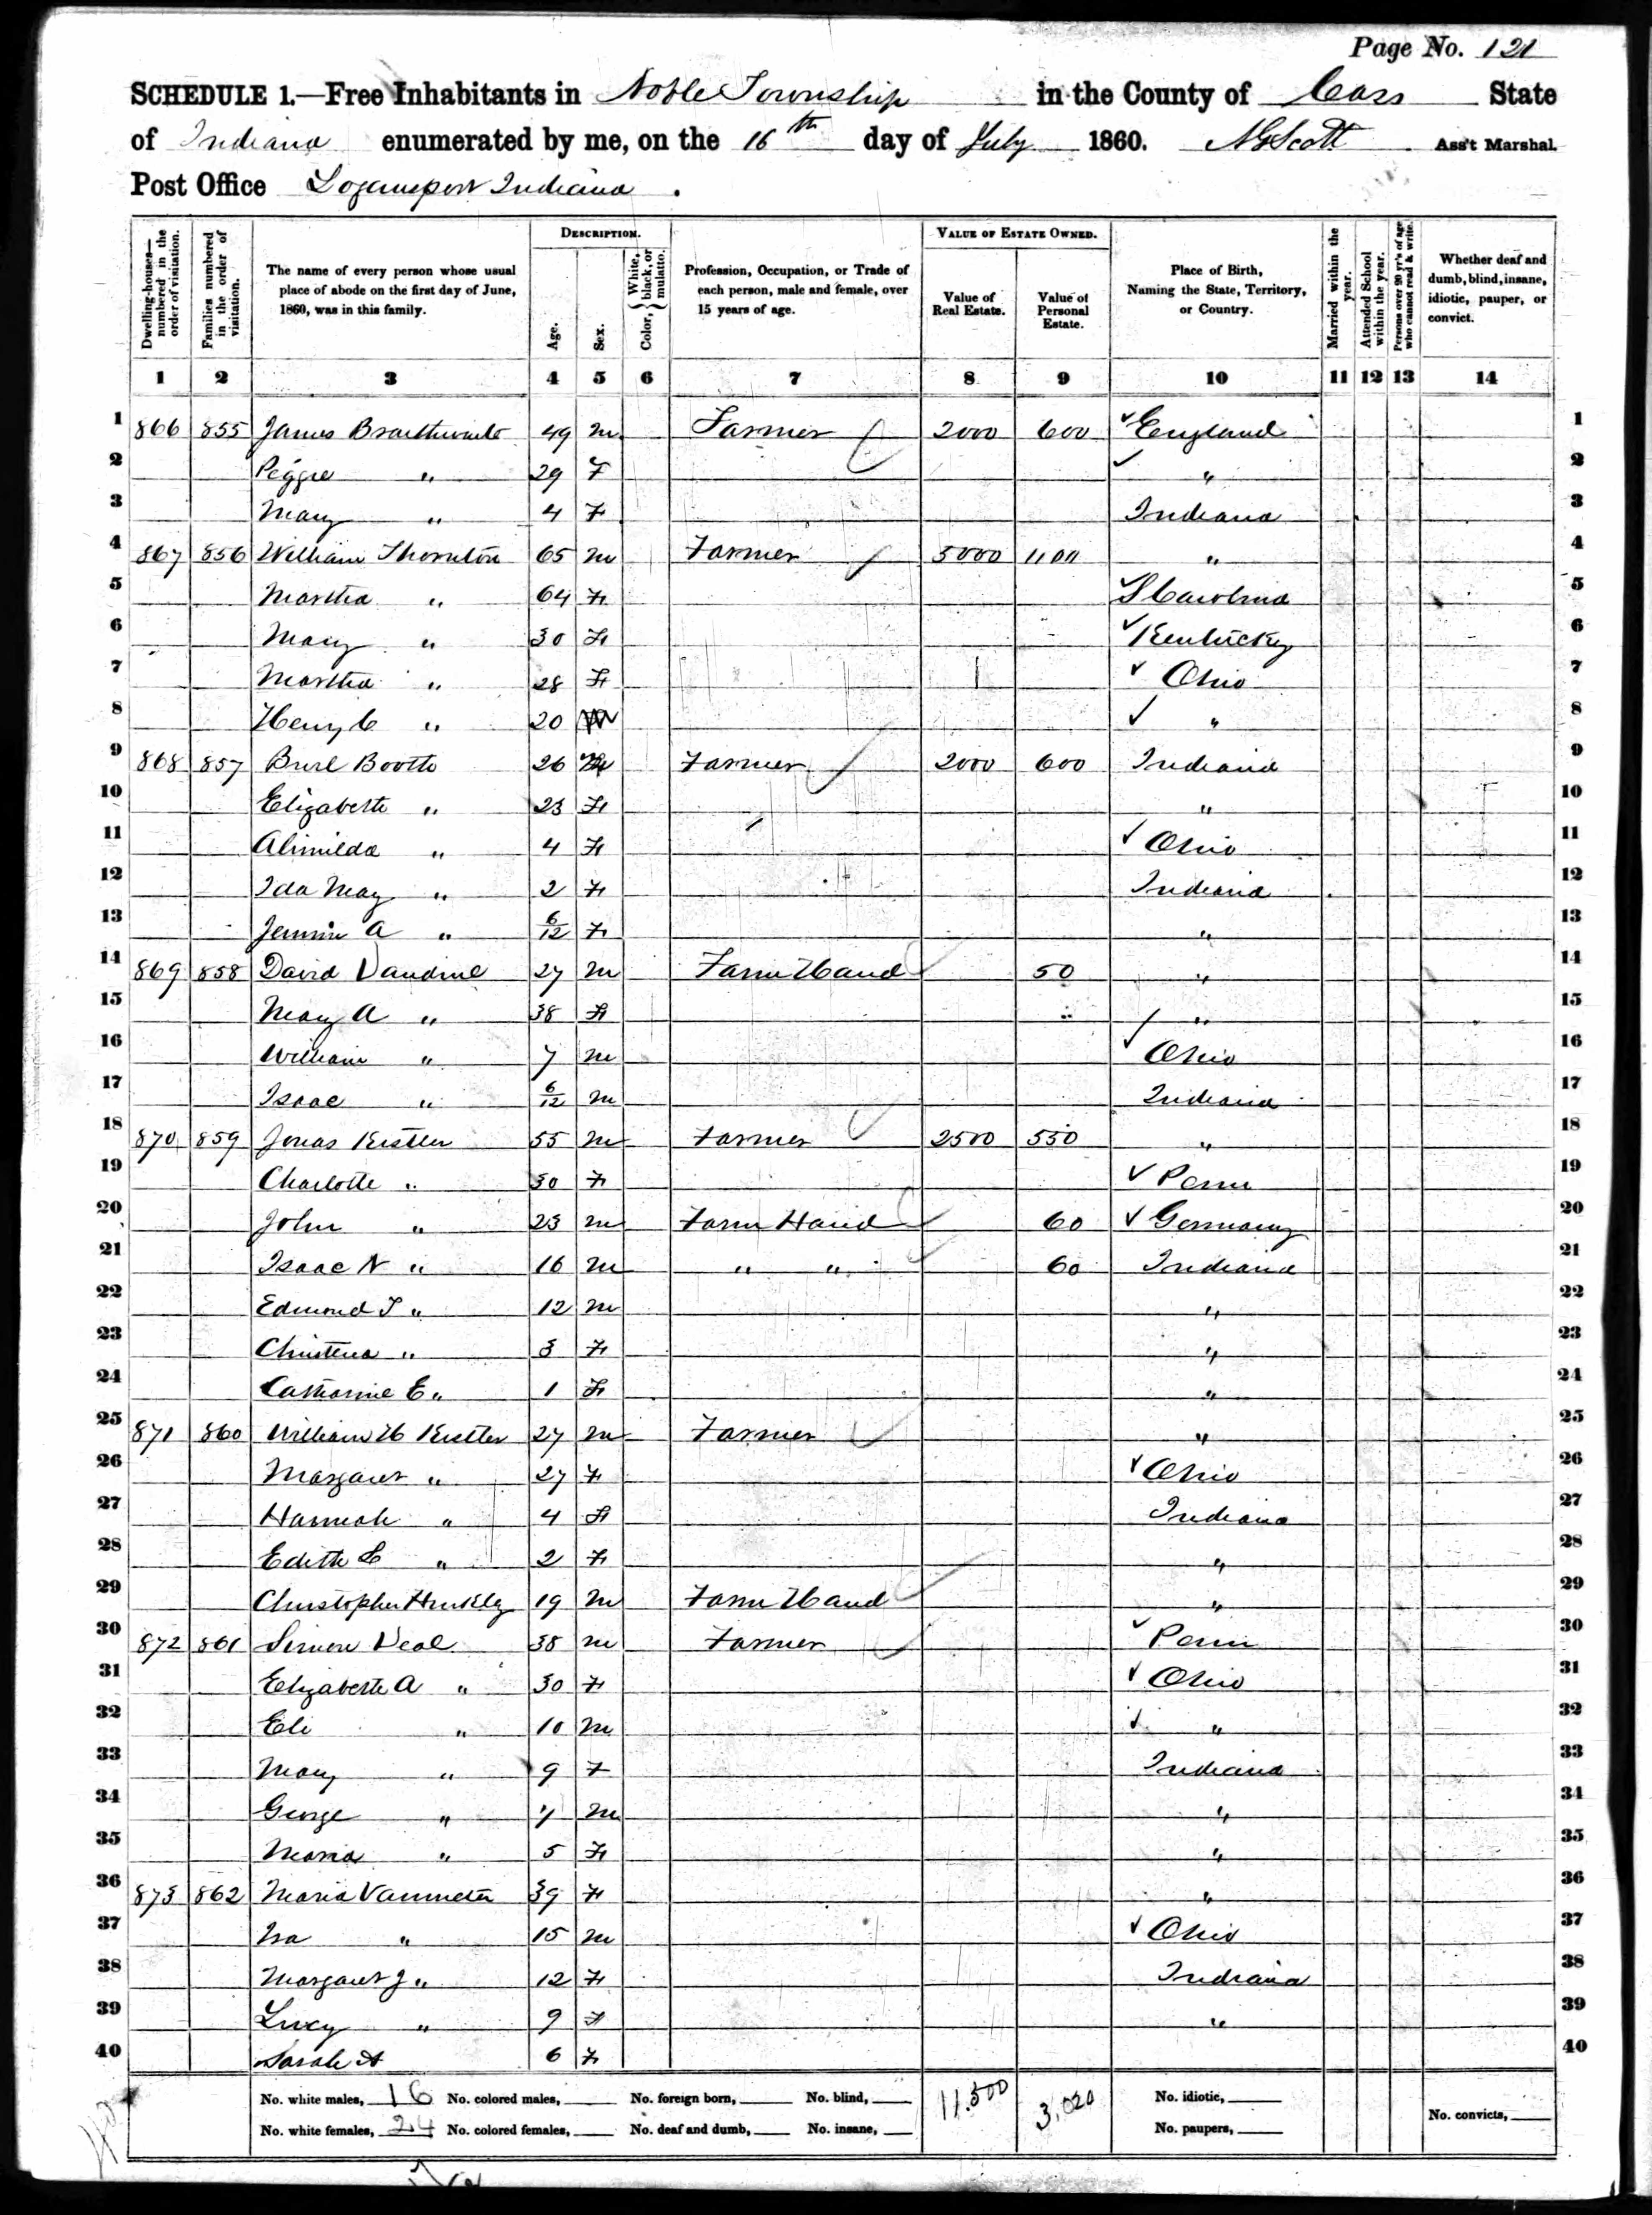 Page No. 121
SCHEDULE 1.—Free Inhabitants in Noble Township in the County of Cass State
of Indiana enumerated by me, on the 16th day of July 1860. Scott Ass't Marshal.
Post Office Logansport Indiana.
DESCRIPTION. VALUE OF ESTATE OWNED.
Dwelling-houses—numbered in the order of visitation. Families numbered in the order of visitation. The name of every person whose usual place of abode on the first day of June, 1860, was in this family. Age. Sex. Color, { White, black, or mulatto. Profession, Occupation, or Trade of each person, male and female, over 15 years of age. Value of Real Estate. Value of Personal Estate. Place of Birth, Naming the State, Territory, or Country. Married within the year. Attended School within the year. Persons over 20 yr's of age who cannot read & write. Whether deaf and dumb, blind, insane, idiotic, pauper, or convict.
1 2 3 4 5 6 7 8 9 10 11 12 13 14
1 866 855 James Braithwaite 49 m Farmer 2000 600 England 1
2 Peggie " 29 F " 2
3 Mary " 4 F Indiana 3
4 867 856 William Thornton 65 m Farmer 5000 1100 " 4
5 Martha " 64 F S Carolina 5
6 Mary " 30 F Kentucky 6
7 Martha " 28 F Ohio 7
8 Henry C " 20 M " 8
9 868 857 Booth 26 M Farmer 2000 600 Indiana 9
10 Elizabeth " 23 F " 10
11 Alimilda " 4 F Ohio 11
12 Ida May " 2 F Indiana 12
13 A " 6/12 F " 13
14 869 858 David 27 m Farm Hand 50 " 14
15 Mary A " 38 F " 15
16 William " 7 m Ohio 16
17 Isaac " 6/12 m Indiana 17
18 870 859 Jonas Kistler 55 m Farmer 2500 550 " 18
19 Charlotte " 30 F Penn 19
20 John " 23 m Farm Hand 60 Germany 20
21 Isaac N " 16 m " " 60 Indiana 21
22 Edmond T " 12 m " 22
23 Christena " 3 F " 23
24 Catharine E " 1 F " 24
25 871 860 William H Kistler 27 m Farmer " 25
26 Margaret " 27 F Ohio 26
27 Hannah " 4 F Indiana 27
28 Edith L " 2 F " 28
29 Christopher Hinkley 19 m Farm Hand " 29
30 872 861 Simon Deal 38 m Farmer Penn 30
31 Elizabeth A " 30 F Ohio 31
32 Eli " 10 m " 32
33 Mary " 9 F Indiana 33
34 George " 7 m " 34
35 Maria " 5 F " 35
36 873 862 Maria Vanmeter 39 F " 36
37 Ira " 15 m Ohio 37
38 Margaret J " 12 F Indiana 38
39 Lucy " 9 F " 39
40 Sarah A 6 F 40
No. white males, 16 No. colored males, No. foreign born, No. blind, 11.500 3,020 No. idiotic,
No. white females, 24 No. colored females, No. deaf and dumb, No. insane, No. paupers, No. convicts,